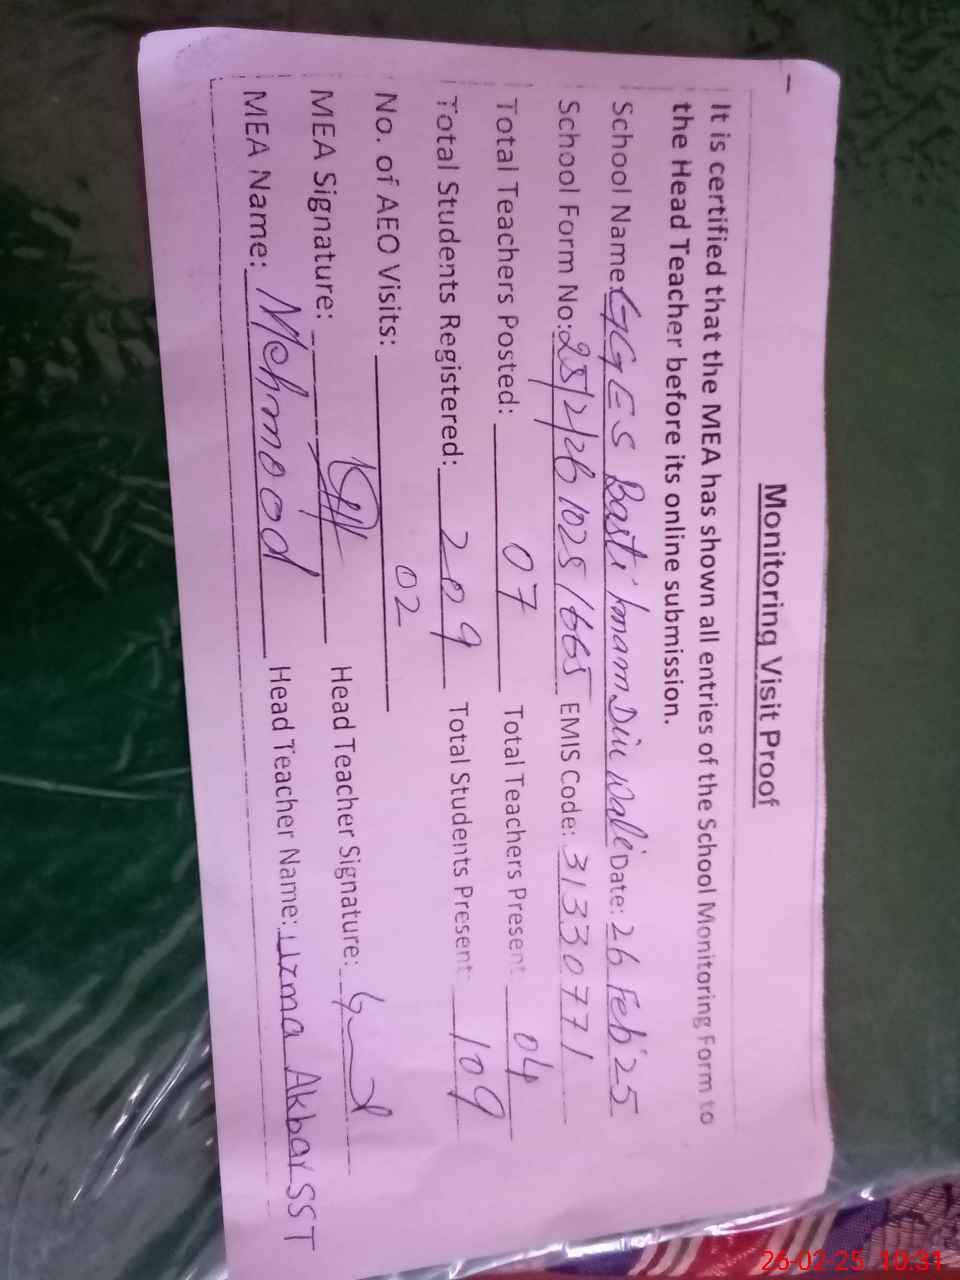 Monitoring Visit Proof
It is certified that the MEA has shown all entries of the School Monitoring Form to
the Head Teacher before its online submission.
School Name: GGES Basti Imam Din Wali Date: 26 Feb'25
School Form No: 25/2/26 1025 1665 EMIS Code: 31330771
Total Teachers Posted: 07 Total Teachers Present: 04
Total Students Registered: 209 Total Students Present: 109
No. of AEO Visits: 02
MEA Signature: Head Teacher Signature:
MEA Name: Mehmood Head Teacher Name: Uzma Akbar SST
26-02-25 10:31